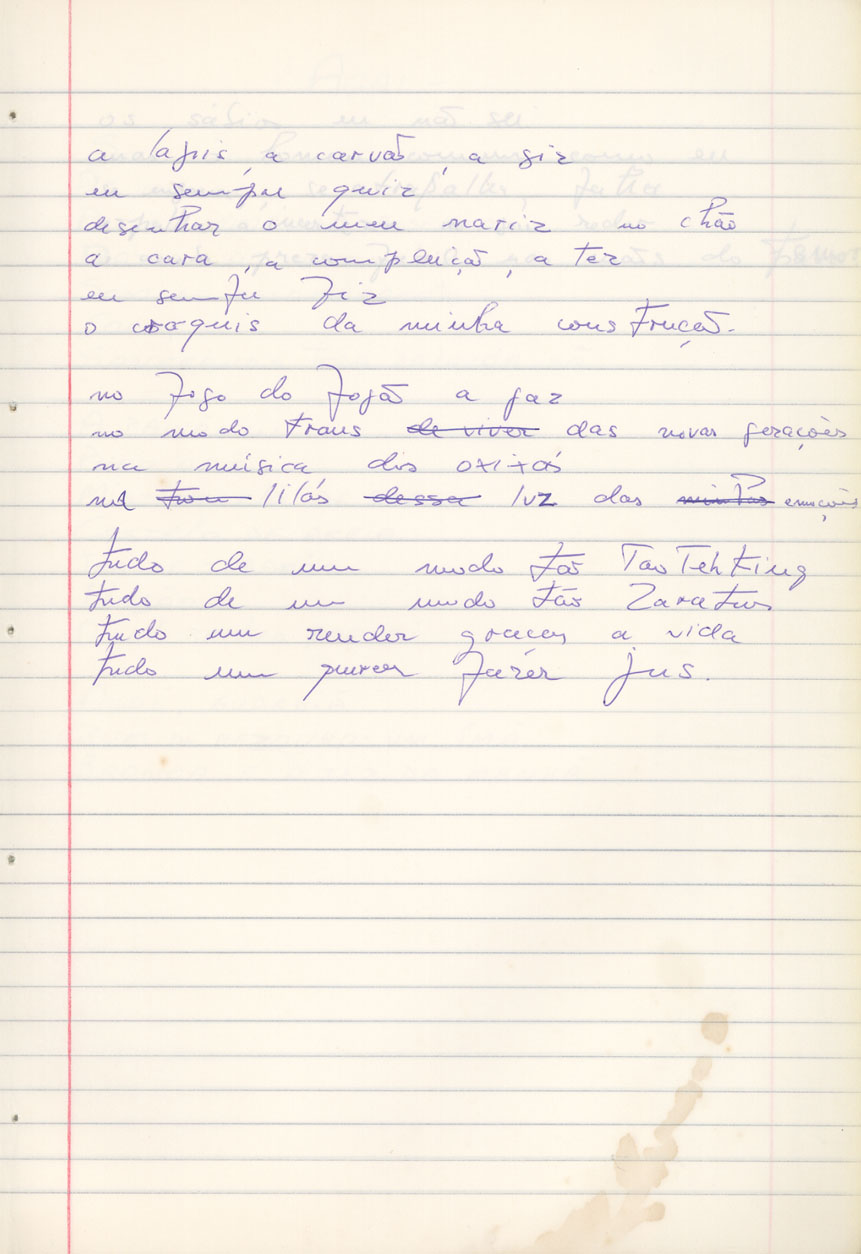 a lápis, a carvão, a giz
eu sempre quiz
desenhar o meu nariz no chão
a cara, a compleição, a tez
eu sempre fiz
o croquis da minha construção.
no fogo do fogão a gaz
no modo trans de viver das novas gerações
na música dos orixás
na lilás dessa luz das minhas emoções
tudo de um modo tão Tao Teh King
tudo de um modo tão Zaratus
tudo um render graças a vida
tudo um querer fazer jus.